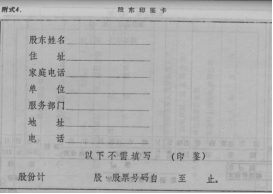 附式4.
股东印鉴卡
股东姓名
住 址
家庭电话
单 位
服务部门
地 址
电 话
以下不需填写 (印 鉴)
股份计 股·股票号码自 至 止.